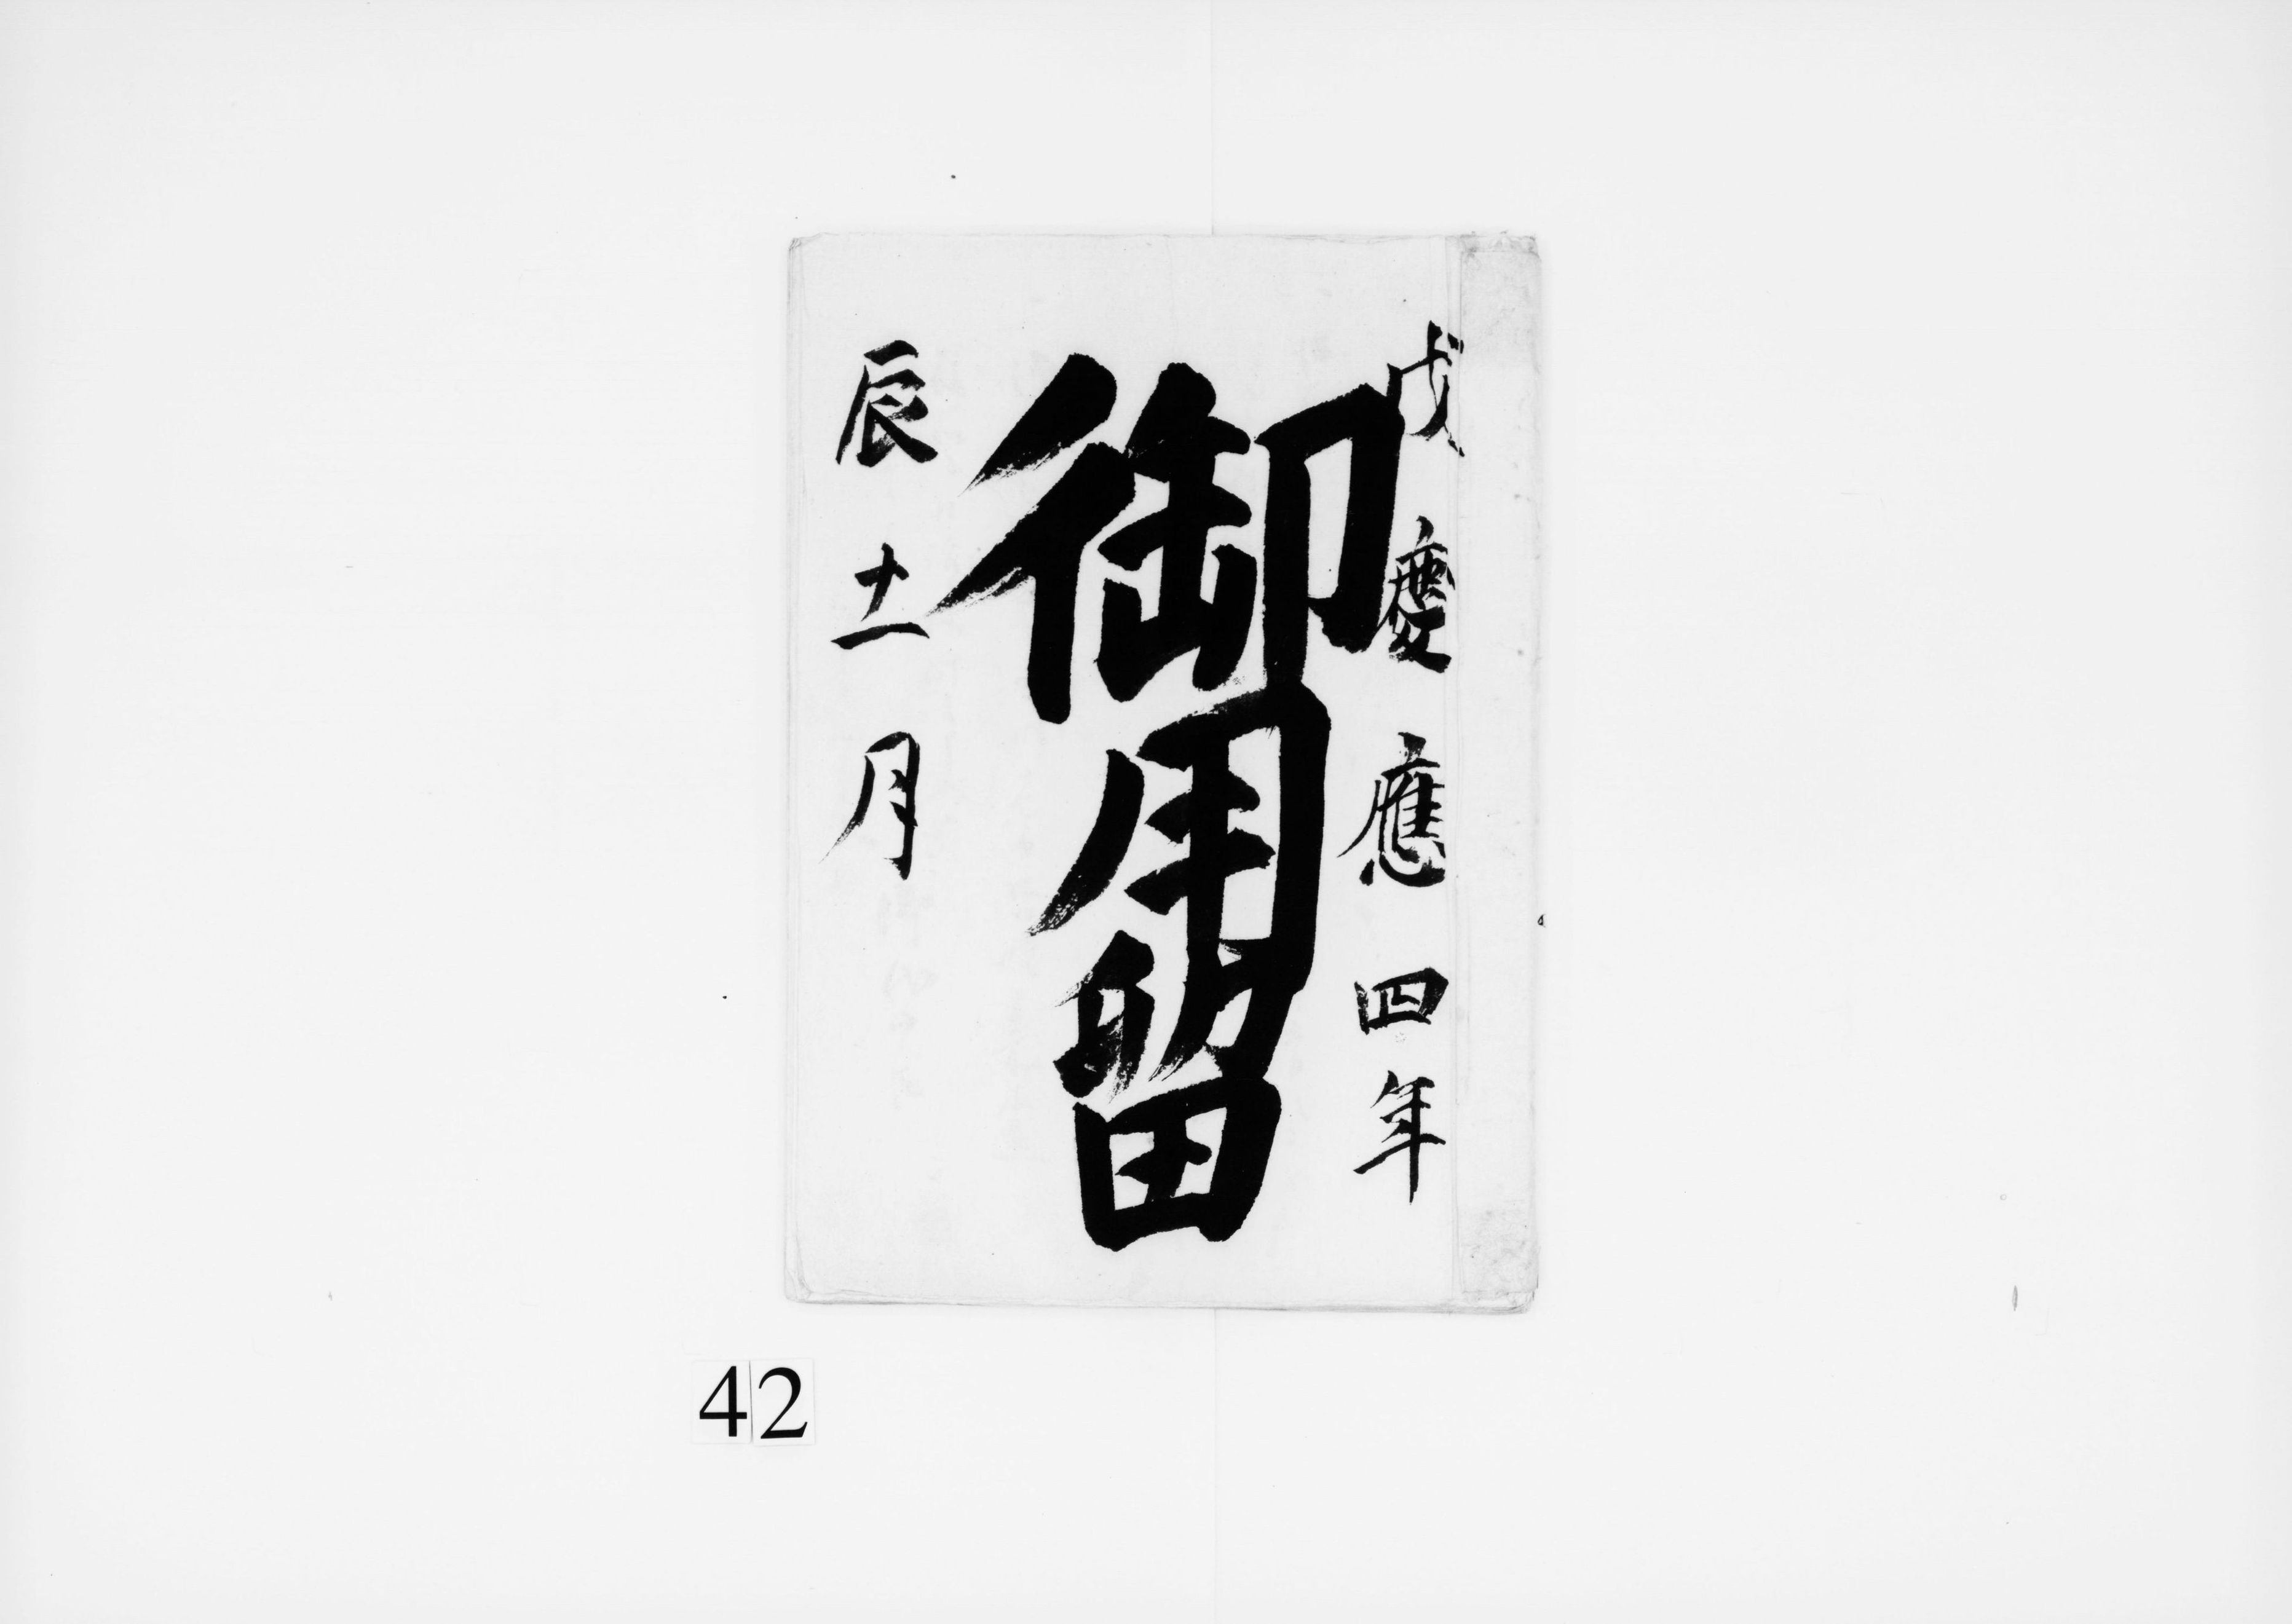 戊慶應四年
御用留
辰十二月
42